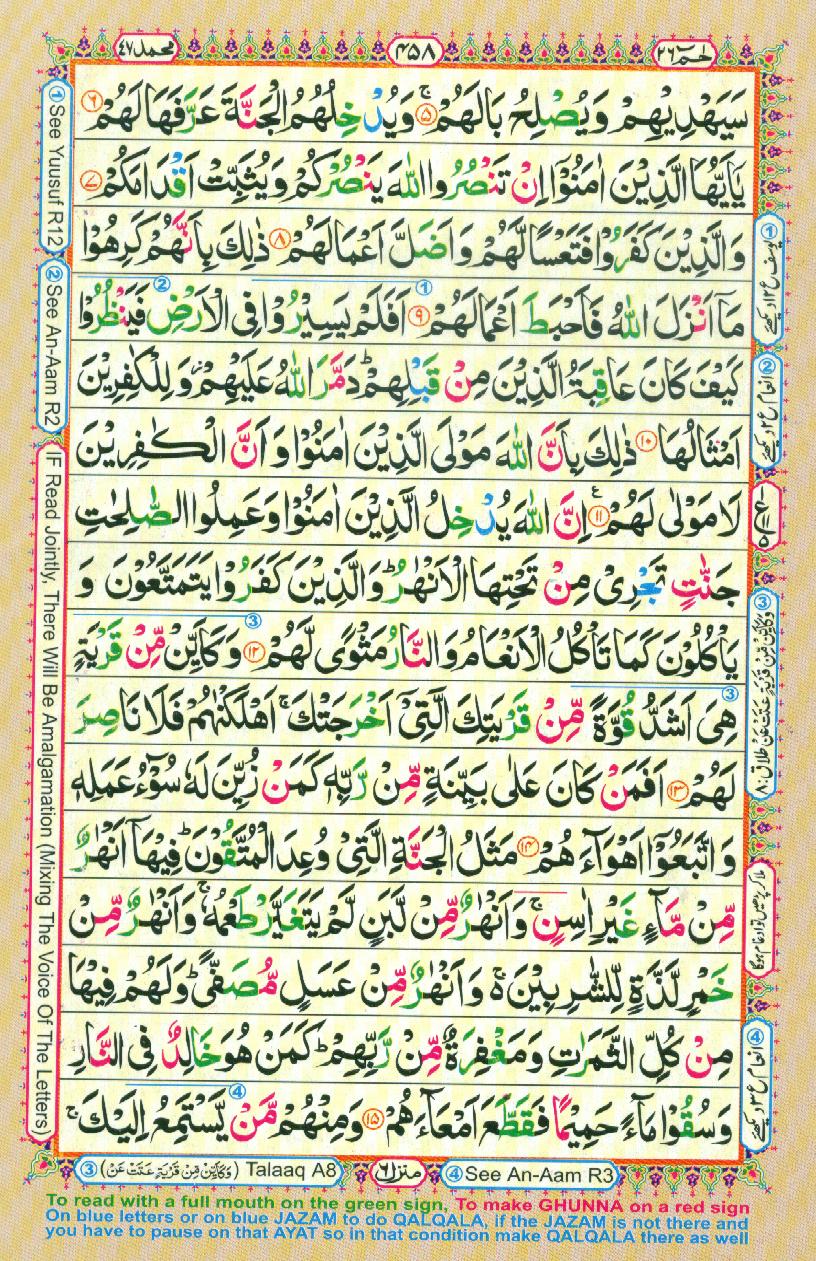 محمد ۴۷
۴۵۸
حٰمٓ ۲۶
سَيَهْدِيْهِمْ وَيُصْلِحُ بَالَهُمْ ۚ۵ وَيُدْخِلُهُمُ الْجَنَّةَ عَرَّفَهَا لَهُمْ ۶
يٰۤاَيُّهَا الَّذِيْنَ اٰمَنُوْۤا اِنْ تَنْصُرُوا اللّٰهَ يَنْصُرْكُمْ وَيُثَبِّتْ اَقْدَامَكُمْ ۷
وَالَّذِيْنَ كَفَرُوْا فَتَعْسًا لَّهُمْ وَاَضَلَّ اَعْمَالَهُمْ ۸ ذٰلِكَ بِاَنَّهُمْ كَرِهُوْا
مَاۤ اَنْزَلَ اللّٰهُ فَاَحْبَطَ اَعْمَالَهُمْ ۹ اَفَلَمْ يَسِيْرُوْا فِى الْاَرْضِ فَيَنْظُرُوْا
كَيْفَ كَانَ عَاقِبَةُ الَّذِيْنَ مِنْ قَبْلِهِمْ ؕ دَمَّرَ اللّٰهُ عَلَيْهِمْ ؗ وَلِلْكٰفِرِيْنَ
اَمْثَالُهَا ۱۰ ذٰلِكَ بِاَنَّ اللّٰهَ مَوْلَى الَّذِيْنَ اٰمَنُوْا وَاَنَّ الْكٰفِرِيْنَ
لَا مَوْلٰى لَهُمْ ۱۱ اِنَّ اللّٰهَ يُدْخِلُ الَّذِيْنَ اٰمَنُوْا وَعَمِلُوا الصّٰلِحٰتِ
جَنّٰتٍ تَجْرِىْ مِنْ تَحْتِهَا الْاَنْهٰرُ ؕ وَالَّذِيْنَ كَفَرُوْا يَتَمَتَّعُوْنَ وَ
يَاْكُلُوْنَ كَمَا تَاْكُلُ الْاَنْعَامُ وَالنَّارُ مَثْوًى لَّهُمْ ۱۲ وَكَاَيِّنْ مِّنْ قَرْيَةٍ
هِىَ اَشَدُّ قُوَّةً مِّنْ قَرْيَتِكَ الَّتِىْۤ اَخْرَجَتْكَ ۚ اَهْلَكْنٰهُمْ فَلَا نَاصِرَ
لَهُمْ ۱۳ اَفَمَنْ كَانَ عَلٰى بَيِّنَةٍ مِّنْ رَّبِّهٖ كَمَنْ زُيِّنَ لَهٗ سُوْٓءُ عَمَلِهٖ
وَاتَّبَعُوْۤا اَهْوَآءَهُمْ ۱۴ مَثَلُ الْجَنَّةِ الَّتِىْ وُعِدَ الْمُتَّقُوْنَ ؕ فِيْهَاۤ اَنْهٰرٌ
مِّنْ مَّآءٍ غَيْرِ اٰسِنٍ ۚ وَاَنْهٰرٌ مِّنْ لَّبَنٍ لَّمْ يَتَغَيَّرْ طَعْمُهٗ ۚ وَاَنْهٰرٌ مِّنْ
خَمْرٍ لَّذَّةٍ لِّلشّٰرِبِيْنَ ۬ۚ وَاَنْهٰرٌ مِّنْ عَسَلٍ مُّصَفًّى ؕ وَلَهُمْ فِيْهَا
مِنْ كُلِّ الثَّمَرٰتِ وَمَغْفِرَةٌ مِّنْ رَّبِّهِمْ ؕ كَمَنْ هُوَ خَالِدٌ فِى النَّارِ
وَسُقُوْا مَآءً حَمِيْمًا فَقَطَّعَ اَمْعَآءَهُمْ ۱۵ وَمِنْهُمْ مَّنْ يَّسْتَمِعُ اِلَيْكَ ۚ
① See Yuusuf R12
② See An-Aam R2
IF Read Jointly, There Will Be Amalgamation (Mixing The Voice Of The Letters)
③ (وَكَاَيِّنْ مِّنْ قَرْيَةٍ عَتَتْ عَنْ) Talaaq A8
منزل ۶
④ See An-Aam R3
To read with a full mouth on the green sign, To make GHUNNA on a red sign
On blue letters or on blue JAZAM to do QALQALA, if the JAZAM is not there and
you have to pause on that AYAT so in that condition make QALQALA there as well